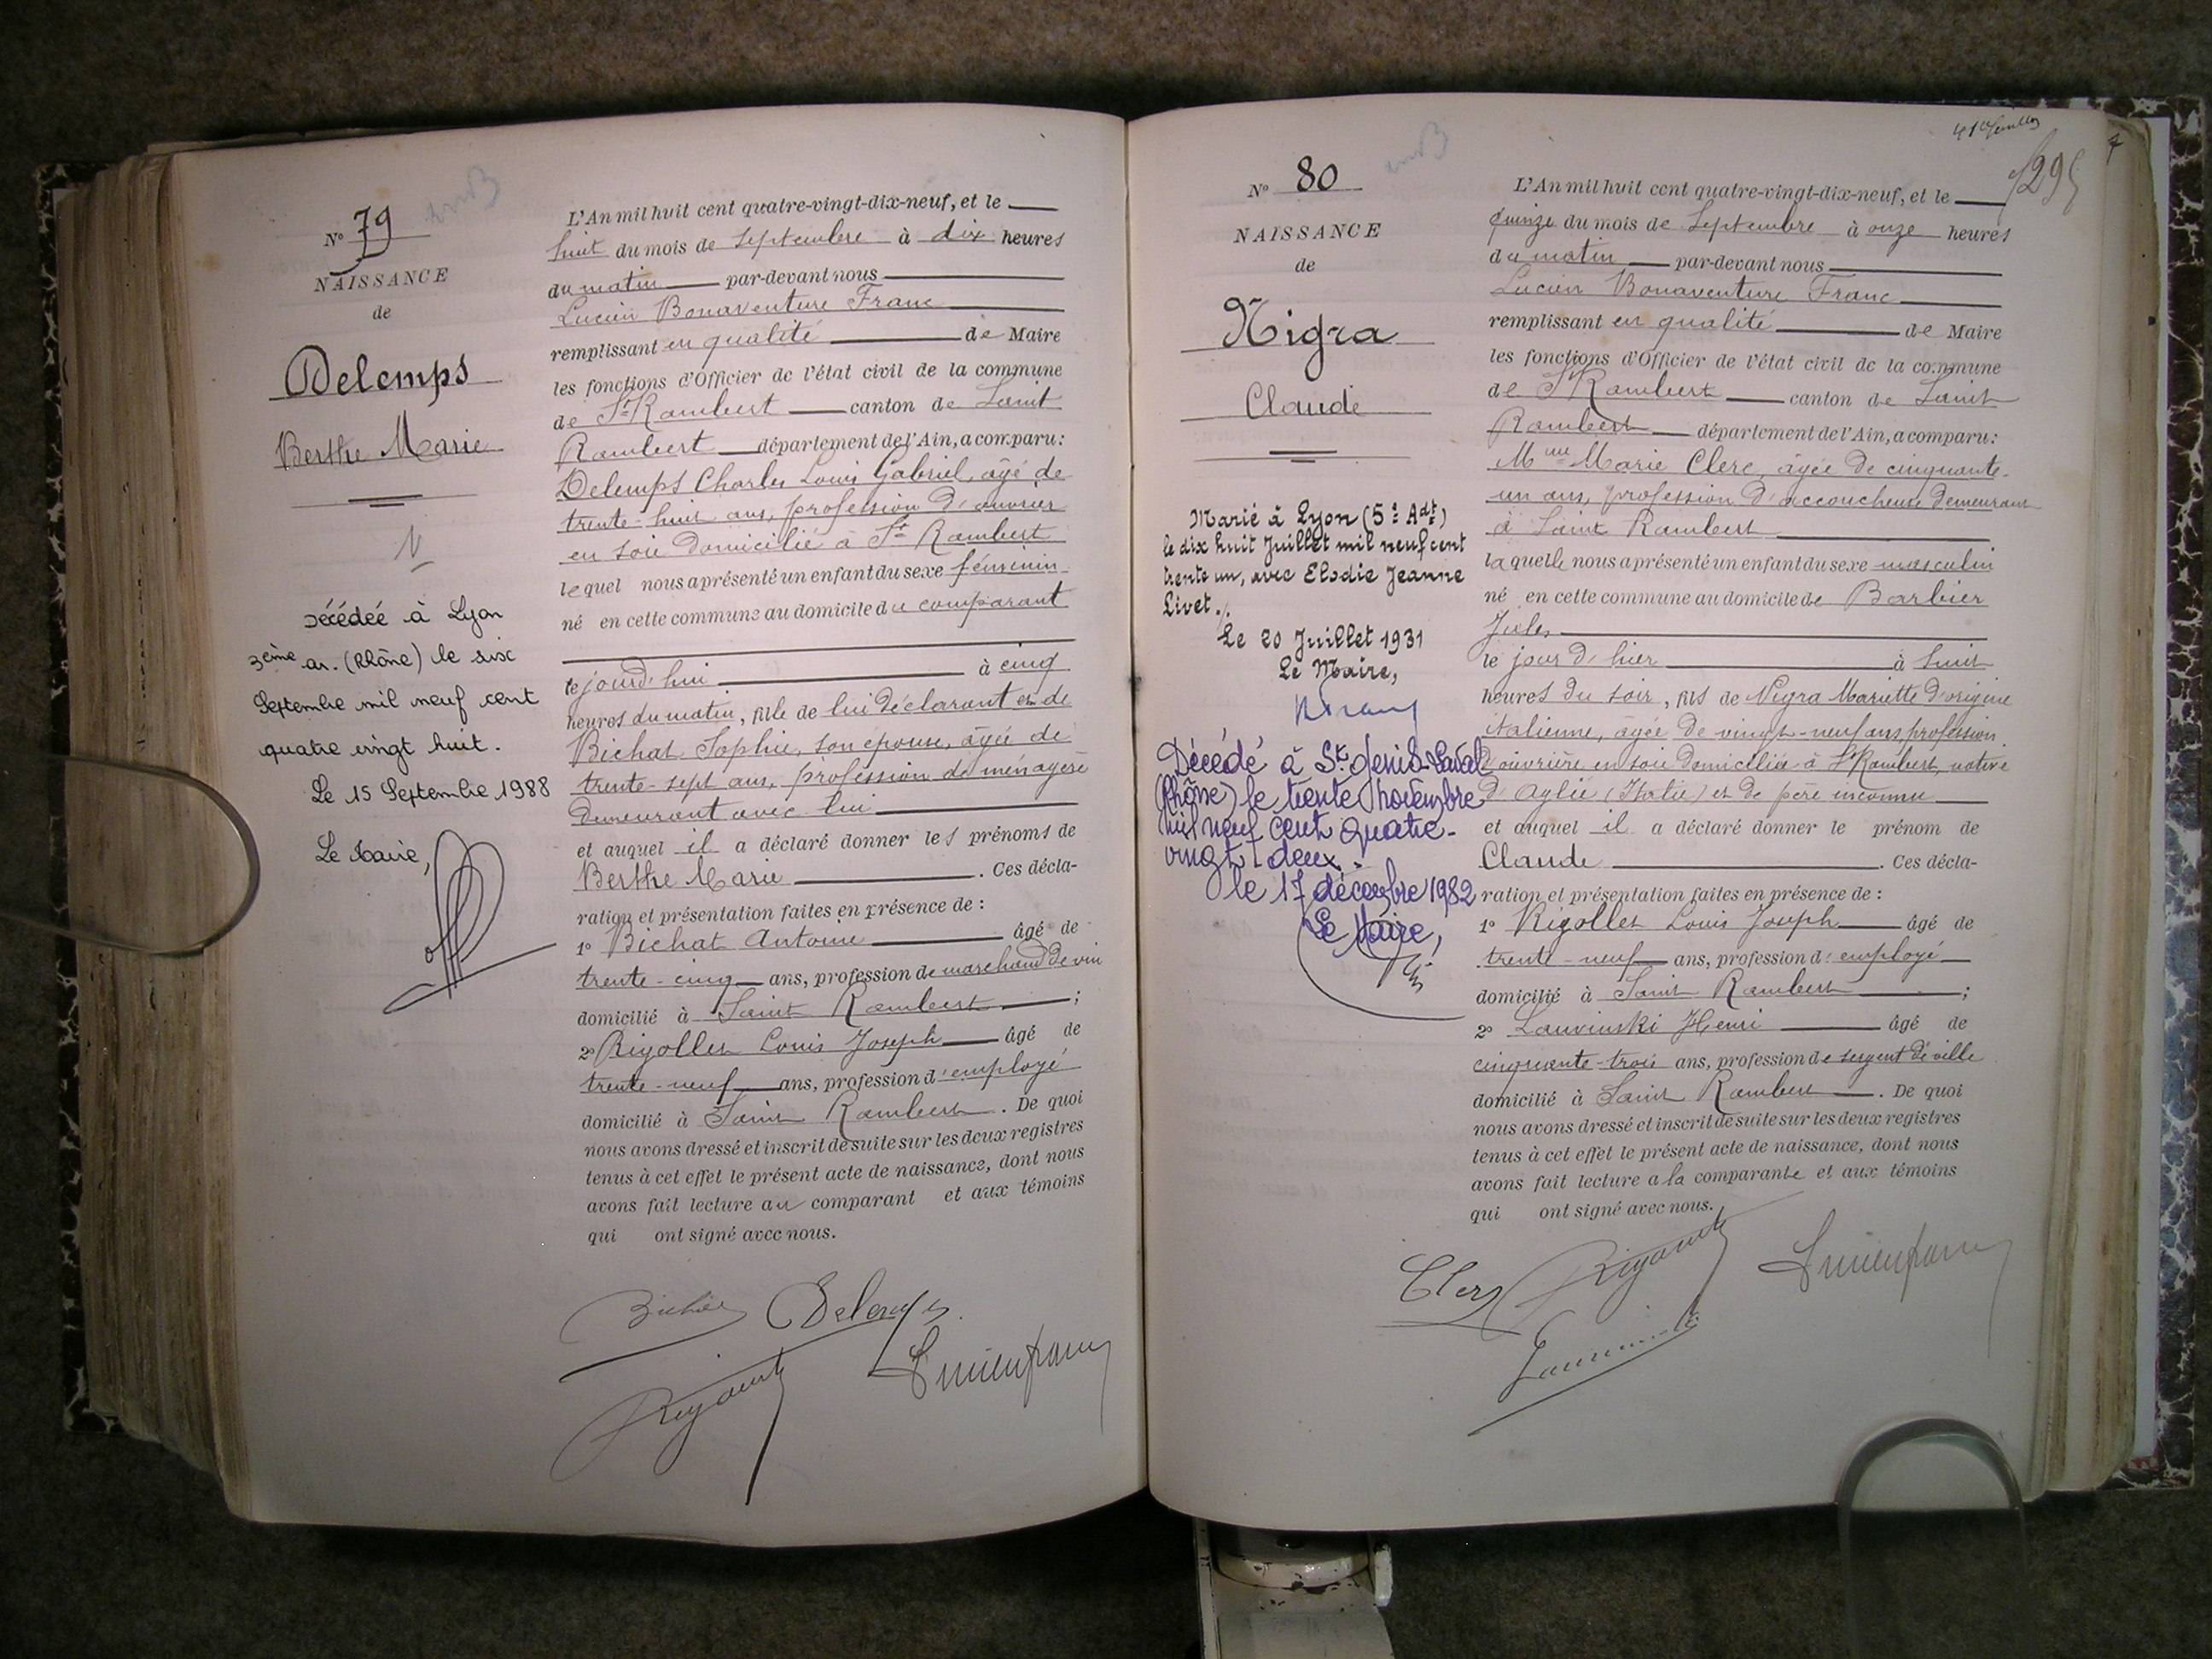 Nº 79
NAISSANCE
de
Delemps
Berthe Marie
N
Décédée à Lyon
3ème ar. (Rhône) le six
Septembre mil neuf cent
quatre vingt huit.
Le 15 Septembre 1988
Le Maire,
L'An mil huit cent quatre-vingt-dix-neuf, et le
huit du mois de Septembre à dix heures
du matin par-devant nous
Lucien Bonaventure Franc
remplissant en qualité de Maire
les fonctions d'Officier de l'état civil de la commune
de St Rambert canton de Saint
Rambert département de l'Ain, a comparu:
Delemps Charles Louis Gabriel, âgé de
trente-huit ans, profession d'ouvrier
en soie domicilié à St Rambert
lequel nous a présenté un enfant du sexe féminin
né en cette commune au domicile du comparant
le jourd'hui à cinq
heures du matin, fille de lui déclarant et de
Bichat Sophie, son épouse, âgée de
trente-sept ans, profession de ménagère
demeurant avec lui
et auquel il a déclaré donner les prénoms de
Berthe Marie. Ces décla-
ration et présentation faites en présence de :
1º Bichat Antoine âgé de
trente-cinq ans, profession de marchand de vin
domicilié à Saint Rambert ;
2º Rigollet Louis Joseph âgé de
trente-neuf ans, profession d'employé
domicilié à Saint Rambert. De quoi
nous avons dressé et inscrit de suite sur les deux registres
tenus à cet effet le présent acte de naissance, dont nous
avons fait lecture au comparant et aux témoins
qui ont signé avec nous.
Delemps
Nº 80
NAISSANCE
de
Nigra
Claude
Marié à Lyon (5e Adt)
le dix huit Juillet mil neuf cent
trente un, avec Elodie Jeanne
Livet ./.
Le 20 Juillet 1931
Le Maire,
Décédé à St. Genis-Laval
(Rhône) le trente novembre
mil neuf cent quatre-
vingt deux.
le 17 décembre 1982
Le Maire,
295
L'An mil huit cent quatre-vingt-dix-neuf, et le
quinze du mois de Septembre à onze heures
du matin par-devant nous
Lucien Bonaventure Franc
remplissant en qualité de Maire
les fonctions d'Officier de l'état civil de la commune
de St Rambert canton de Saint
Rambert département de l'Ain, a comparu:
Mme Marie Clerc, âgée de cinquante-
un ans, profession d'accoucheuse demeurant
à Saint Rambert
laquelle nous a présenté un enfant du sexe masculin
né en cette commune au domicile de Barbier
Jules
le jour d'hier à huit
heures du soir, fils de Nigra Mariette d'origine
italienne, âgée de vingt-neuf ans, profession
d'ouvrière en soie domiciliée à St Rambert, native
d'Aglié (Italie) et de père inconnu
et auquel il a déclaré donner le prénom de
Claude. Ces décla-
ration et présentation faites en présence de :
1º Rigollet Louis Joseph âgé de
trente-neuf ans, profession d'employé
domicilié à Saint Rambert ;
2º Lauvinski Henri âgé de
cinquante-trois ans, profession de sergent de ville
domicilié à Saint Rambert. De quoi
nous avons dressé et inscrit de suite sur les deux registres
tenus à cet effet le présent acte de naissance, dont nous
avons fait lecture a la comparante et aux témoins
qui ont signé avec nous.
Clerc